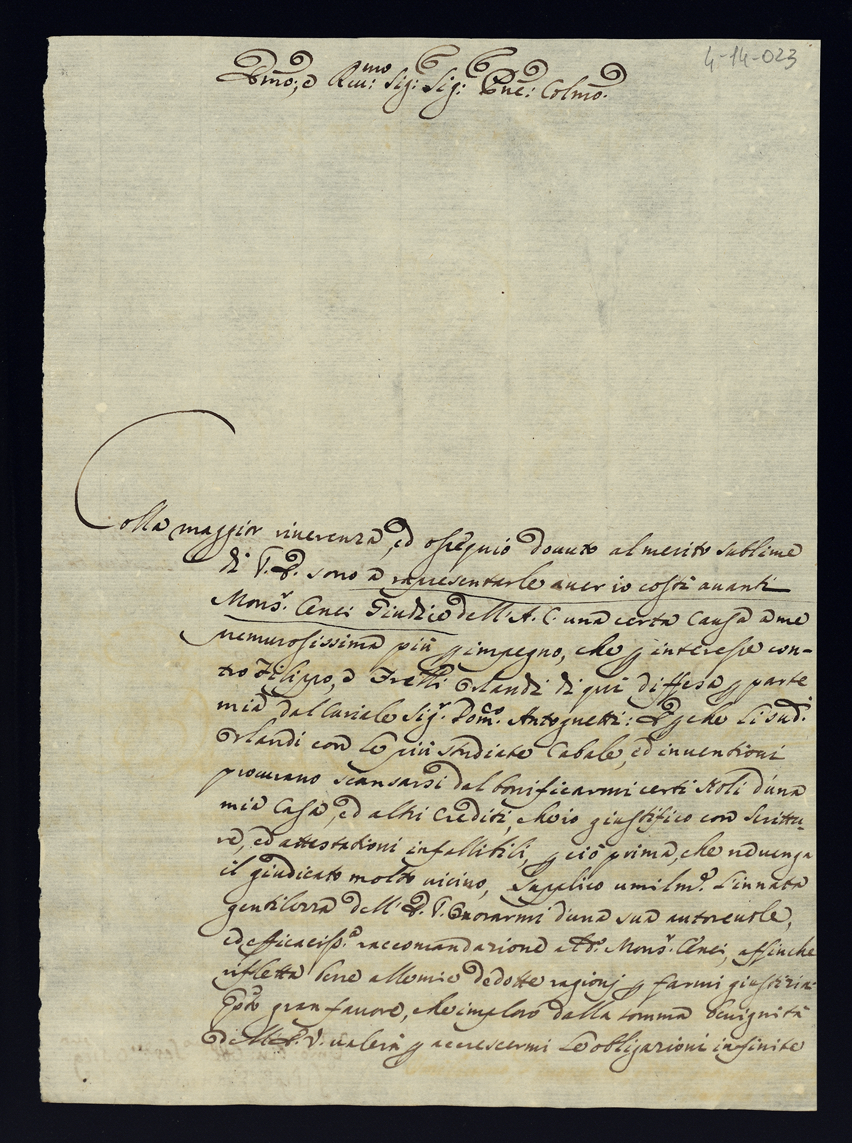 4-14-023
Illmo: e Reu:mo Sig: Sig: Pne: Colmo.
Colla maggior riuerenza, ed ossequio douuto al merito sublime
di V. E. sono a rappresentarle auer io costì auanti
Monsr. Cenci Giudice dell'A. C. una certa Causa a me
premurosissima più p impegno, che p interesse con-
tro Filippo, e Frelli Orlandi di qui difesa p parte
mia dal Curiale Sigr. Domco. Antognetti: E pche li sudi.
Orlandi con le più studiate Cabale, ed inuentioni
procurano scansarsi dal bonificarmi certi Noli d'una
mia Casa, ed altri Crediti, che io giustifico con Scrittu-
re, ed attestazioni infallibili, p ciò prima, che ne uenga
il giudicato molto uicino, Supplico umilme. l'innata
gentilezza dell'E. V. Onorarmi d'una sua autoreuole,
ed efficacissa. raccomandazione a do. Monsr. Cenci, affinche
rifletta bene alle mie dedotte ragioni p farmi giustizia.
Qsto gran fauore, che imploro dalla somma benignità
dell'E. V. ualerà p accrescermi le obligazioni infinite